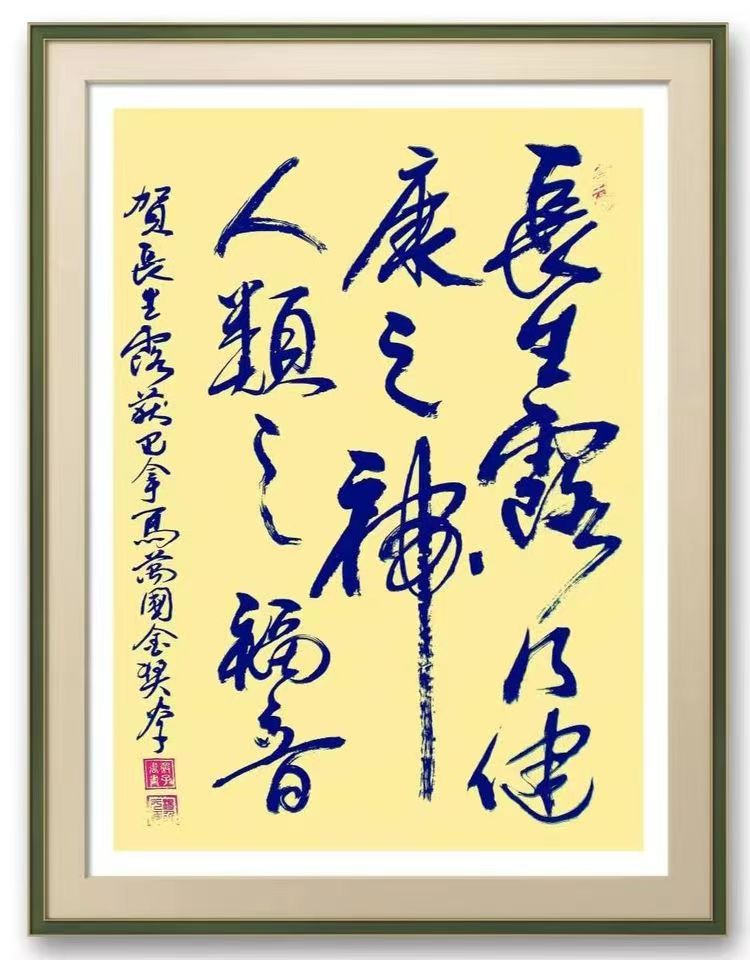 長生露乃健
康之神
人類之福音
賀長生露获巴拿馬萬國金奖